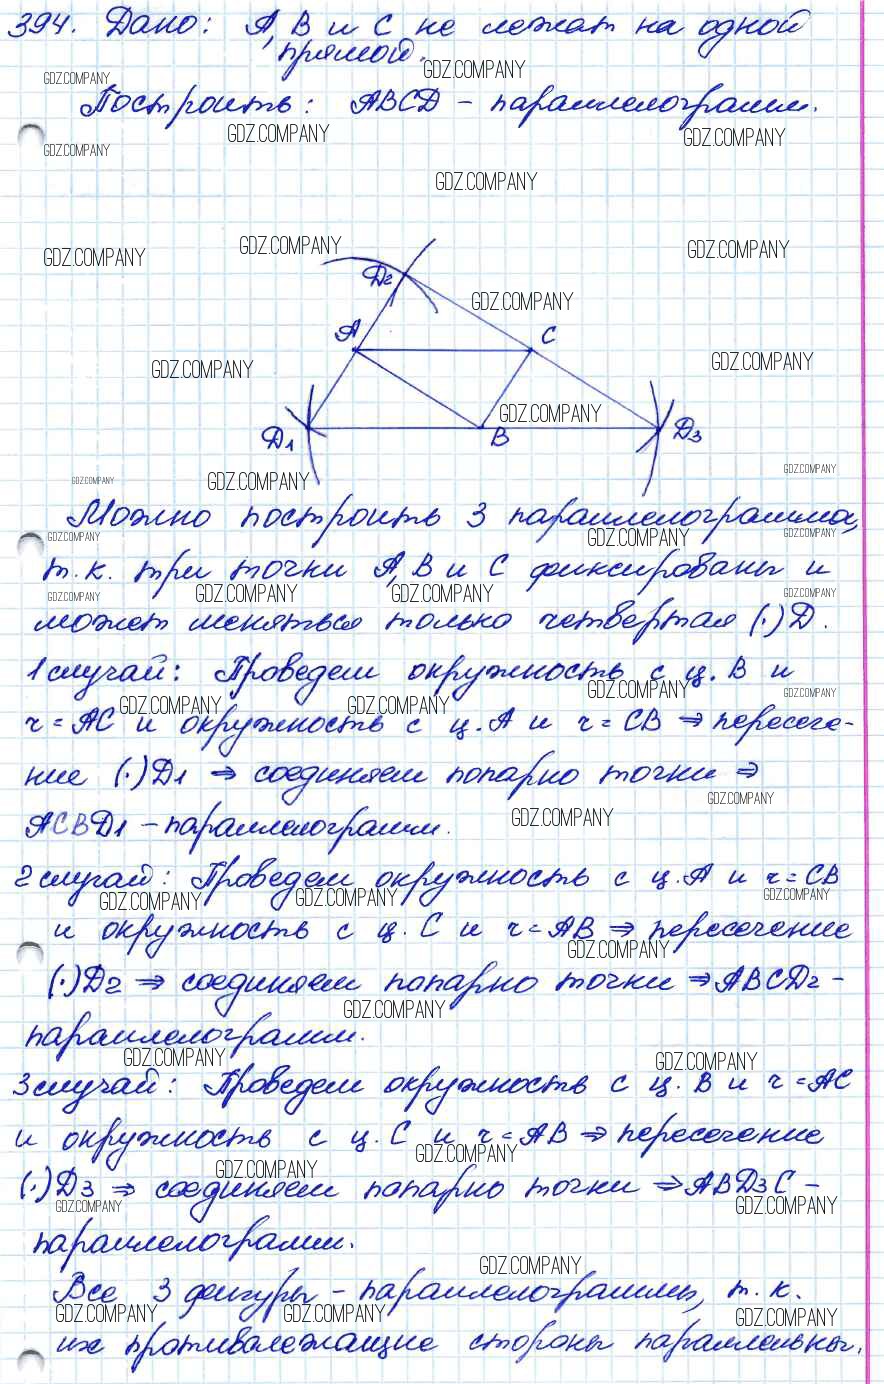 394. Дано: A, B и C не лежат на одной
прямой.
GDZ.COMPANY GDZ.COMPANY
Построить: ABCD – параллелограмм.
GDZ.COMPANY GDZ.COMPANY
GDZ.COMPANY
GDZ.COMPANY
GDZ.COMPANY GDZ.COMPANY GDZ.COMPANY
D2
GDZ.COMPANY
A C
GDZ.COMPANY GDZ.COMPANY
GDZ.COMPANY
D1 B D3
GDZ.COMPANY GDZ.COMPANY GDZ.COMPANY
Можно построить 3 параллелограмма,
GDZ.COMPANY GDZ.COMPANY GDZ.COMPANY
т.к. три точки A, B и C фиксированы и
GDZ.COMPANY GDZ.COMPANY GDZ.COMPANY GDZ.COMPANY
может меняться только четвертая (·) D.
1 случай: Проведем окружность с ц. B и
GDZ.COMPANY GDZ.COMPANY
GDZ.COMPANY GDZ.COMPANY
r = AC и окружность с ц. A и r = CB ⇒ пересече-
ние (·) D1 ⇒ соединяем попарно точки ⇒
GDZ.COMPANY
ACBD1 – параллелограмм.
GDZ.COMPANY
2 случай: Проведем окружность с ц. A и r = CB
GDZ.COMPANY GDZ.COMPANY GDZ.COMPANY
и окружность с ц. C и r = AB ⇒ пересечение
GDZ.COMPANY
(·) D2 ⇒ соединяем попарно точки ⇒ ABCD2 –
GDZ.COMPANY
параллелограмм.
GDZ.COMPANY GDZ.COMPANY
3 случай: Проведем окружность с ц. B и r = AC
и окружность с ц. C и r = AB ⇒ пересечение
GDZ.COMPANY
GDZ.COMPANY
(·) D3 ⇒ соединяем попарно точки ⇒ ABD3C –
GDZ.COMPANY GDZ.COMPANY
параллелограмм.
GDZ.COMPANY
Все 3 фигуры – параллелограммы, т.к.
GDZ.COMPANY GDZ.COMPANY GDZ.COMPANY
их противолежащие стороны параллельны.